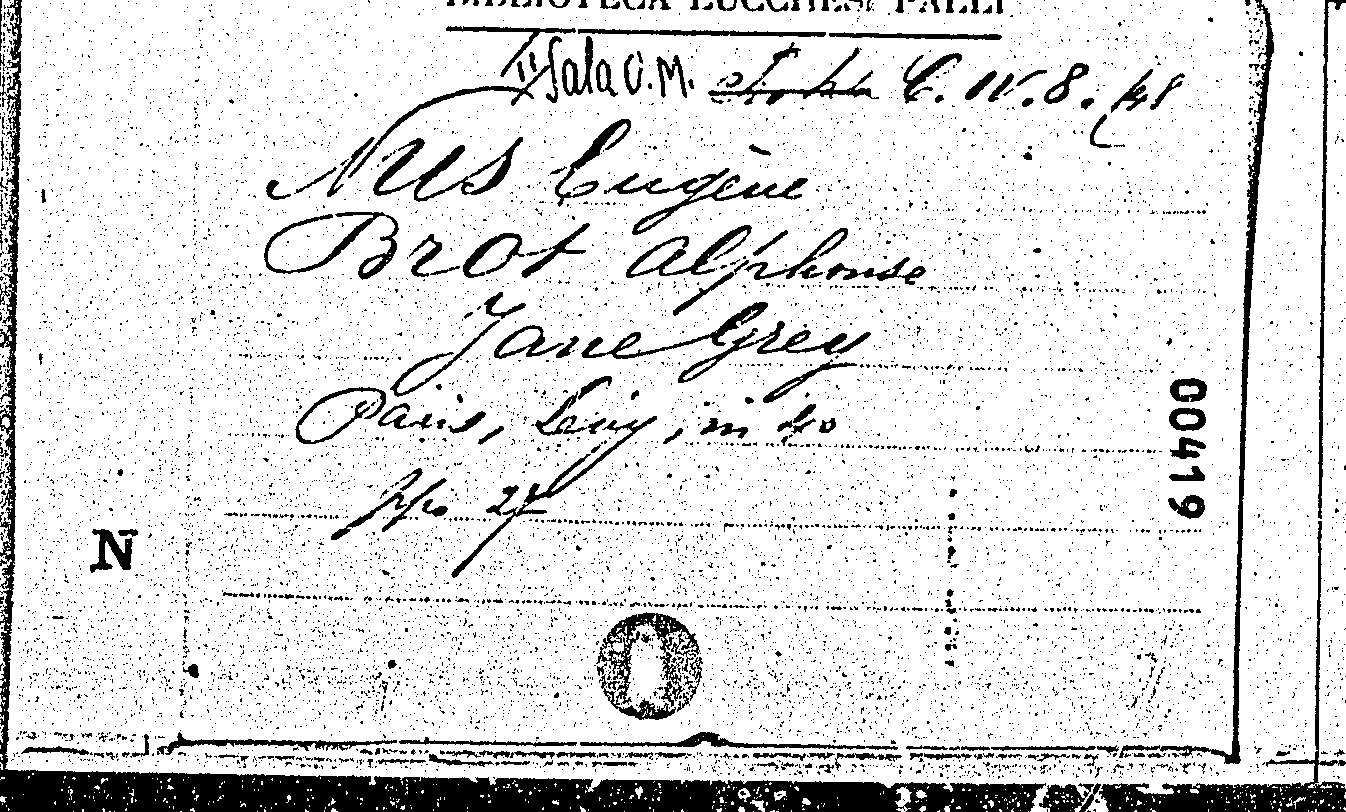 BIBLIOTECA LUCCHESI PALLI
II Sala O.M. C. IV. 8.
Nus Eugène
Brot Alphonse
Jane Grey
Paris, Levy, in 4o
pp. 27
N
00419